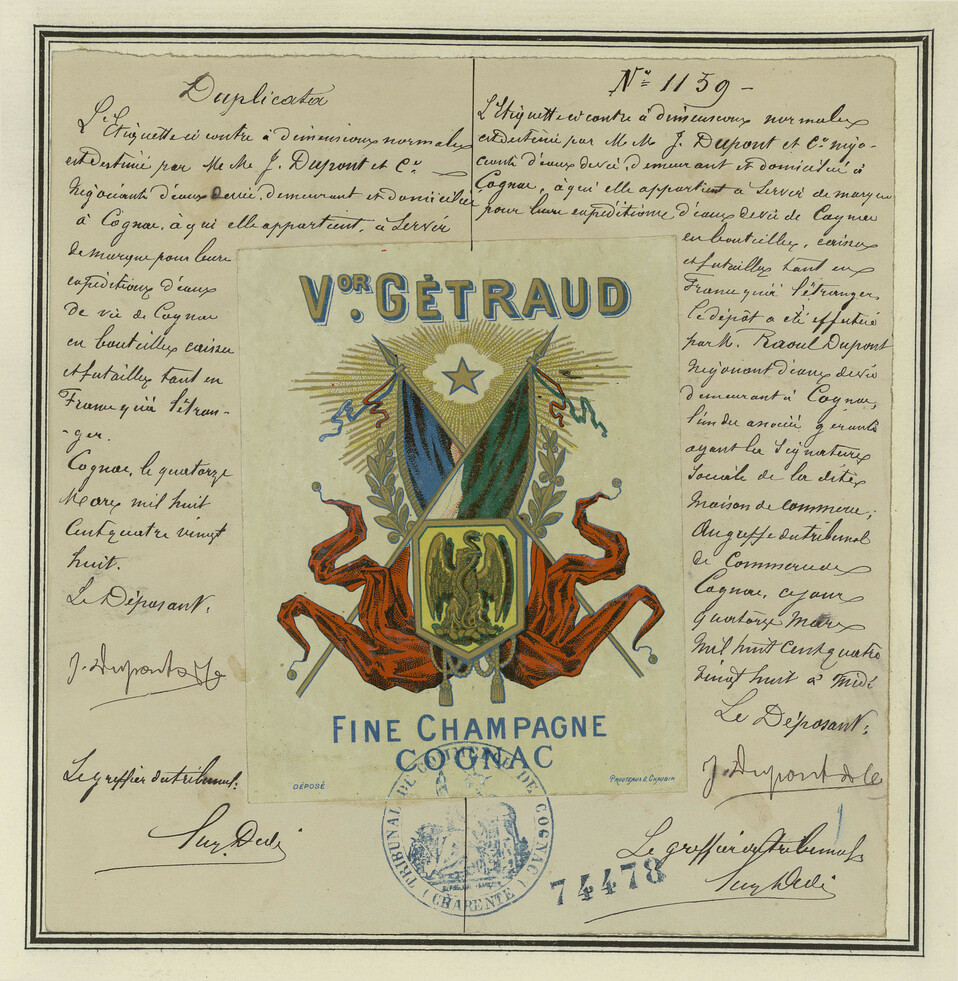 Duplicata
L'Etiquette ci contre à dimensions normales
est destinée par MM. J. Dupont et Cie
Négociants d'eaux de vie, demeurant et domiciliés
à Cognac, à qui elle appartient, à servir
de marque pour leurs
expéditions d'eaux
de vie de Cognac
en bouteilles, caisses
et futailles tant en
France qu'à l'étran-
-ger.
Cognac, le quatorze
Mars mil huit
cent quatre vingt
huit.
Le Déposant,
J. Dupont & Cie
Le greffier du tribunal:
N° 1159 -
L'Etiquette ci contre à dimensions normales
est destinée par MM. J. Dupont et Cie négo-
ciants d'eaux de vie, demeurant et domiciliés à
Cognac, à qui elle appartient à servir de marque
pour leurs expéditions d'eaux de vie de Cognac
en bouteilles, caisses
et futailles tant en
France qu'à l'étranger,
Le dépôt a été effectué
par M. Raoul Dupont
Négociant d'eaux de vie
demeurant à Cognac,
l'un des associés gérants
ayant la signature
sociale de la dite
maison de commerce;
Au greffe du tribunal
de Commerce de
Cognac, ce jour
quatorze Mars
mil huit cent quatre
vingt huit à midi
Le Déposant:
J. Dupont & Cie
Le greffier du tribunal
VOR. GÉTRAUD
FINE CHAMPAGNE
COGNAC
DÉPOSÉ
TRIBUNAL DE COMMERCE DE COGNAC
(CHARENTE)
74478